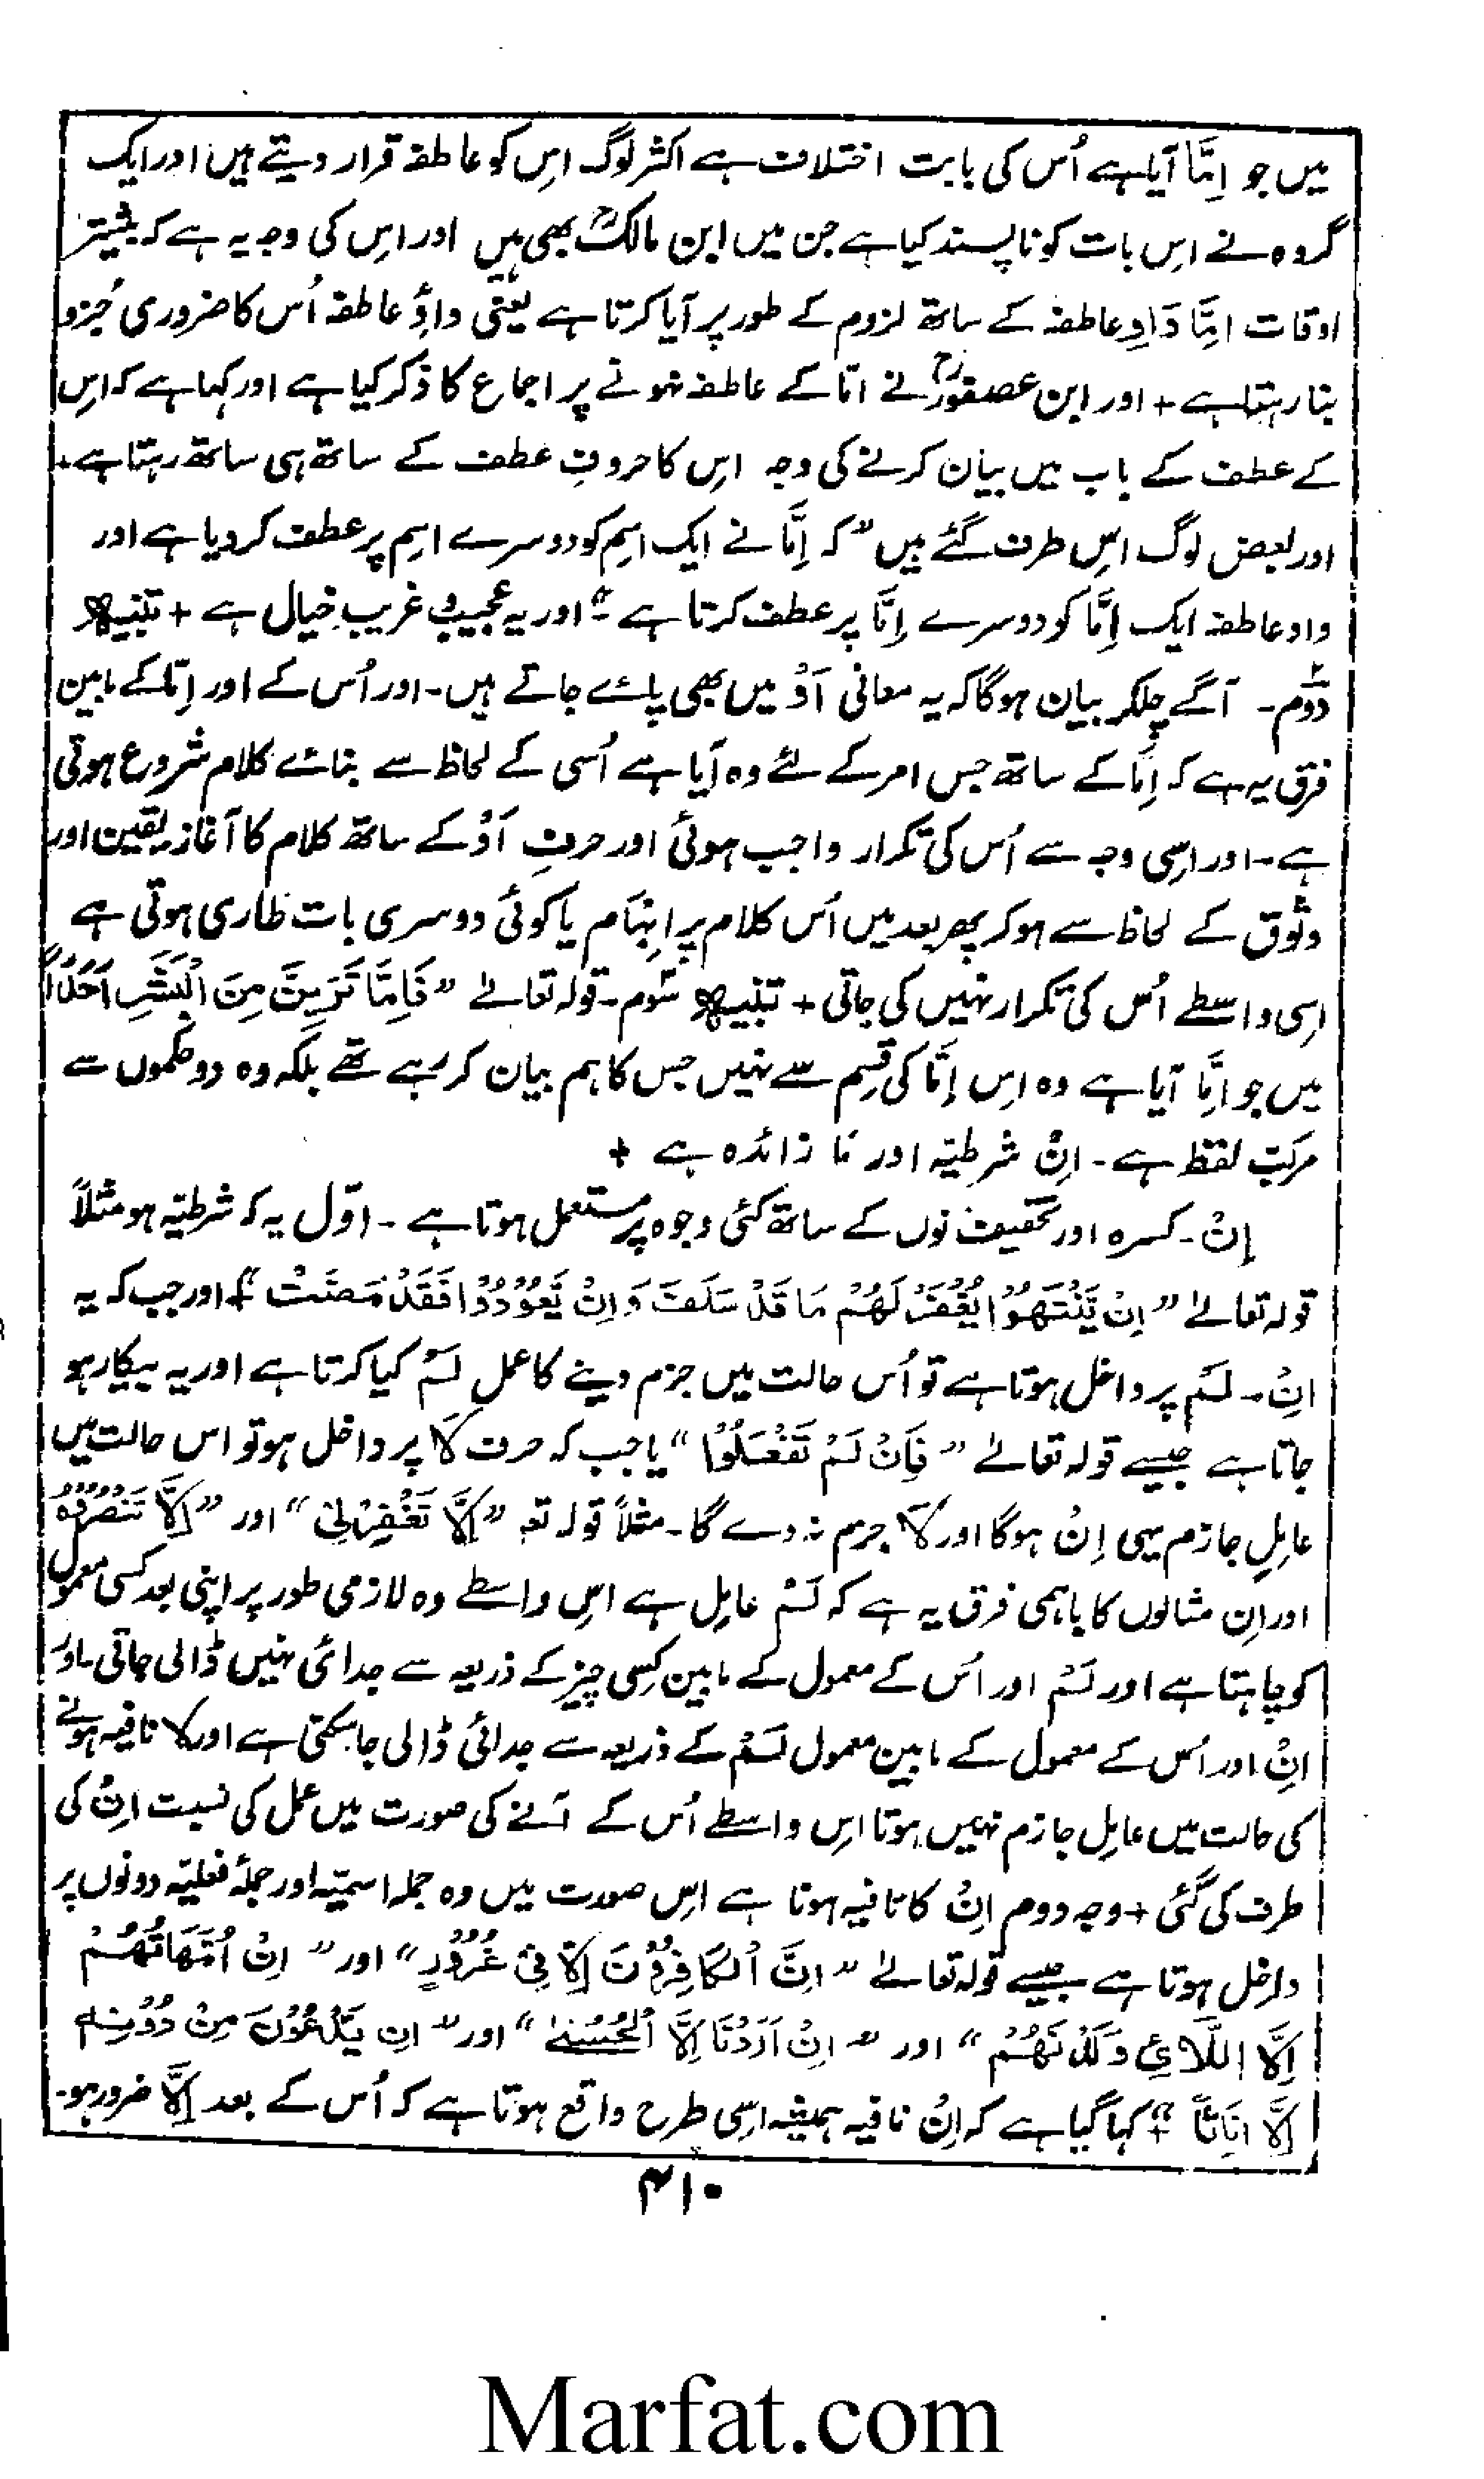 میں جو اِمَّا آیا ہے اُس کی بابت اختلاف ہے اکثر لوگ اِس کو عاطفہ قرار دیتے ہیں اور ایک
گروہ نے اِس بات کو ناپسند کیا ہے جن میں ابن مالکؒ بھی ہیں اور اِس کی وجہ یہ ہے کہ بیشتر
اوقات اِمَّا وَاوِ عاطفہ کے ساتھ لزوم کے طور پر آیا کرتا ہے یعنی واوِ عاطفہ اُس کا ضروری جُزو
بنا رہتا ہے + اور ابن عصفورؒ نے اِمّا کے عاطفہ نہونے پر اجماع کا ذکر کیا ہے اور کہا ہے کہ اِس
کے عطف کے باب میں بیان کرنے کی وجہ اِس کا حروفِ عطف کے ساتھ ہی ساتھ رہتا ہے +
اور بعض لوگ اِس طرف گئے ہیں ”کہ اِمَّا نے ایک اسِم کو دوسرے اسِم پر عطف کر دیا ہے اور
واو عاطفہ ایک اِمَّا کو دوسرے اِمَّا پر عطف کرتا ہے“ اور یہ عجیب و غریب خیال ہے + تنبیہہ
دوّم۔ آگے چلکر بیان ہوگا کہ یہ معانی اَوْ میں بھی پائے جاتے ہیں۔ اور اُس کے اور اِمّا کے مابین
فرق یہ ہے کہ اِمّا کے ساتھ جس امر کے لئے وہ آیا ہے اُسی کے لحاظ سے بنائے کلام شروع ہوتی
ہے۔ اور اِسی وجہ سے اُس کی تکرار واجب ہوئی اور حرفِ اَوْ کے ساتھ کلام کا آغاز یقین اور
وثوق کے لحاظ سے ہو کر پھر بعد میں اُس کلام پر ابہام یا کوئی دوسری بات طاری ہوتی ہے
اِسی واسطے اُس کی تکرار نہیں کی جاتی + تنبیہہ سوّم۔ قولہ تعالےٰ ”فَاِمَّا تَرَيِنَّ مِنَ الْبَشَرِ اَحَدًا“
میں جو اِمَّا آیا ہے وہ اِس اِمَّا کی قسِم سے نہیں جس کا ہم بیان کر رہے تھے بلکہ وہ دو کلموں سے
مرکّب لفظ ہے۔ اِنْ شرطیّہ اور مَا زائدہ ہے +
اِنْ۔ کسرہ اور تخفیف نوں کے ساتھ کئی وجوہ پر مستعمل ہوتا ہے۔ اوّل یہ کہ شرطیّہ ہو مثلاً
قولہ تعالےٰ ”اِنْ يَّنْتَهُوْا يُغْفَرْ لَهُمْ مَا قَدْ سَلَفَ وَاِنْ يَّعُوْدُوْا فَقَدْ مَضَتْ“ + اور جب کہ یہ
اِنْ۔ لَمْ پر داخل ہوتا ہے تو اُس حالت میں جزم دینے کا عمل لَمْ کیا کرتا ہے اور یہ بیکار ہو
جاتا ہے جیسے قولہ تعالےٰ ”فَاِنْ لَمْ تَفْعَلُوْا“ یا جب کہ حرف لَا پر داخل ہو تو اس حالت میں
عاملِ جازم یہی اِنْ ہوگا اور لَا جرم نہ دے گا۔ مثلاً قولہ تعہ ”اِلَّا تَغْفِرْلِیْ“ اور ”اِلَّا تَنْصُرُوْهُ
اور اِن مثالوں کا باہمی فرق یہ ہے کہ لَمْ عاِمل ہے اِس واسطے وہ لازمی طور پر اپنی بعد کسی معمول
کو چاہتا ہے اور لَمْ اور اُس کے معمول کے مابین کِسی چیز کے ذریعہ سے جدائی نہیں ڈالی جاتی۔ اور
اِنْ اور اُس کے معمول کے مابین معمول لَمْ کے ذریعہ سے جدائی ڈالی جا سکتی ہے اور لا نافیہ ہونے
کی حالت میں عاِمل جازم نہیں ہوتا اِس واسطے اُس کے آنے کی صورت میں عمل کی نسبت اِنْ کی
طرف کی گئی + وجہ دوم اِنْ کا نافیہ ہونا ہے اِس صورت میں وہ جملہ اسمیّہ اور جملۂ فعلیّہ دونوں پر
داخل ہوتا ہے جیسے قولہ تعالےٰ ”اِنَّ الْكَافِرُوْنَ اِلَّا فِیْ غُرُوْرٍ“ اور ”اِنْ اُمَّهَاتُهُمْ
اِلَّا اللَّآئِیْ وَلَدْنَهُمْ“ اور ”اِنْ اَرَدْنَا اِلَّا الْحُسْنٰے“ اور ”اِن يَّدْعُوْنَ مِنْ دُوْنِہٖ
اِلَّا اِنَاثًا“ + کہا گیا ہے کہ اِنْ نافیہ ہمیشہ اِسی طرح واقع ہوتا ہے کہ اُس کے بعد اِلَّا ضرور ہو۔
۴۱۰
Marfat.com